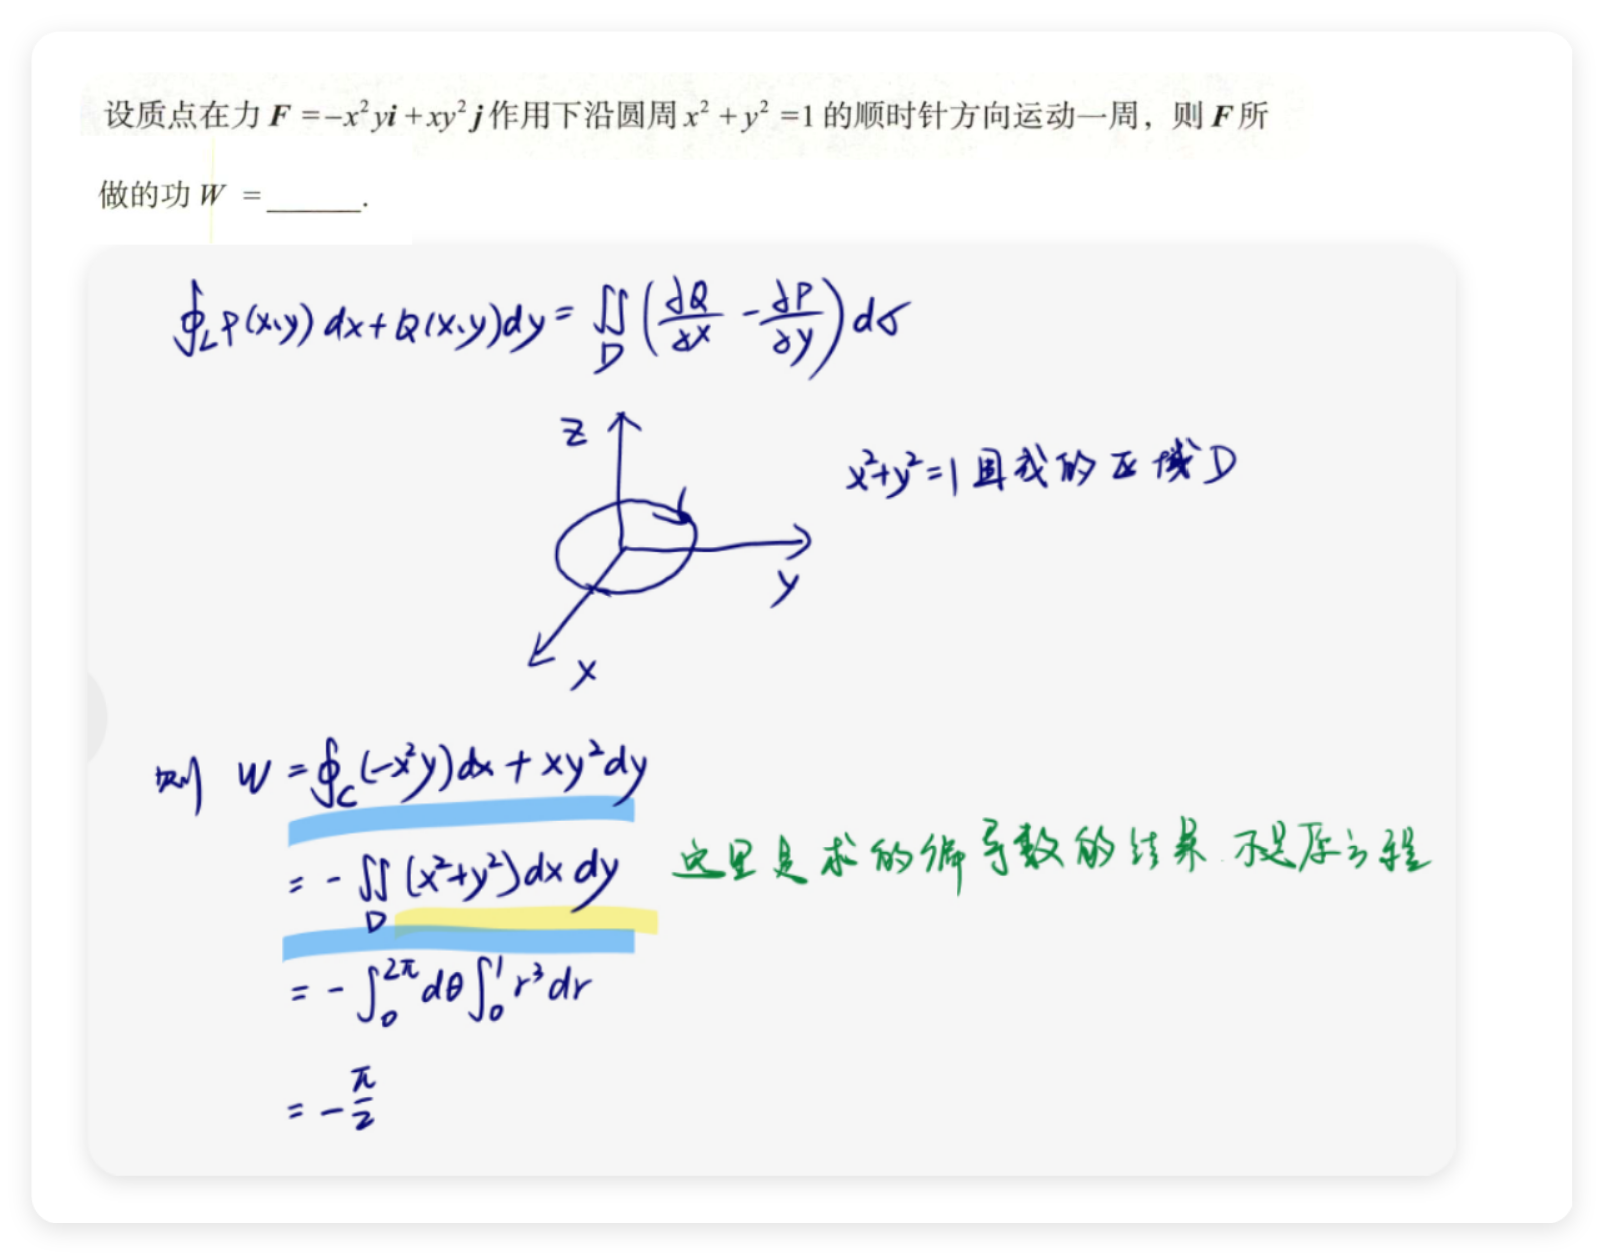 设质点在力 F = -x² yi + xy² j 作用下沿圆周 x² + y² =1 的顺时针方向运动一周，则 F 所
做的功 W = ______.
∮_L P(x,y) dx + Q(x,y)dy = ∬_D (∂Q/∂x - ∂P/∂y) dσ
z
x²+y²=1 且我的区域D
y
x
则 W = ∮_C (-x²y)dx + xy²dy
= - ∬_D (x²+y²)dx dy 这里是求的偏导数的结果 不是原方程
= - ∫₀^2π dθ ∫₀^1 r³ dr
= - π/2